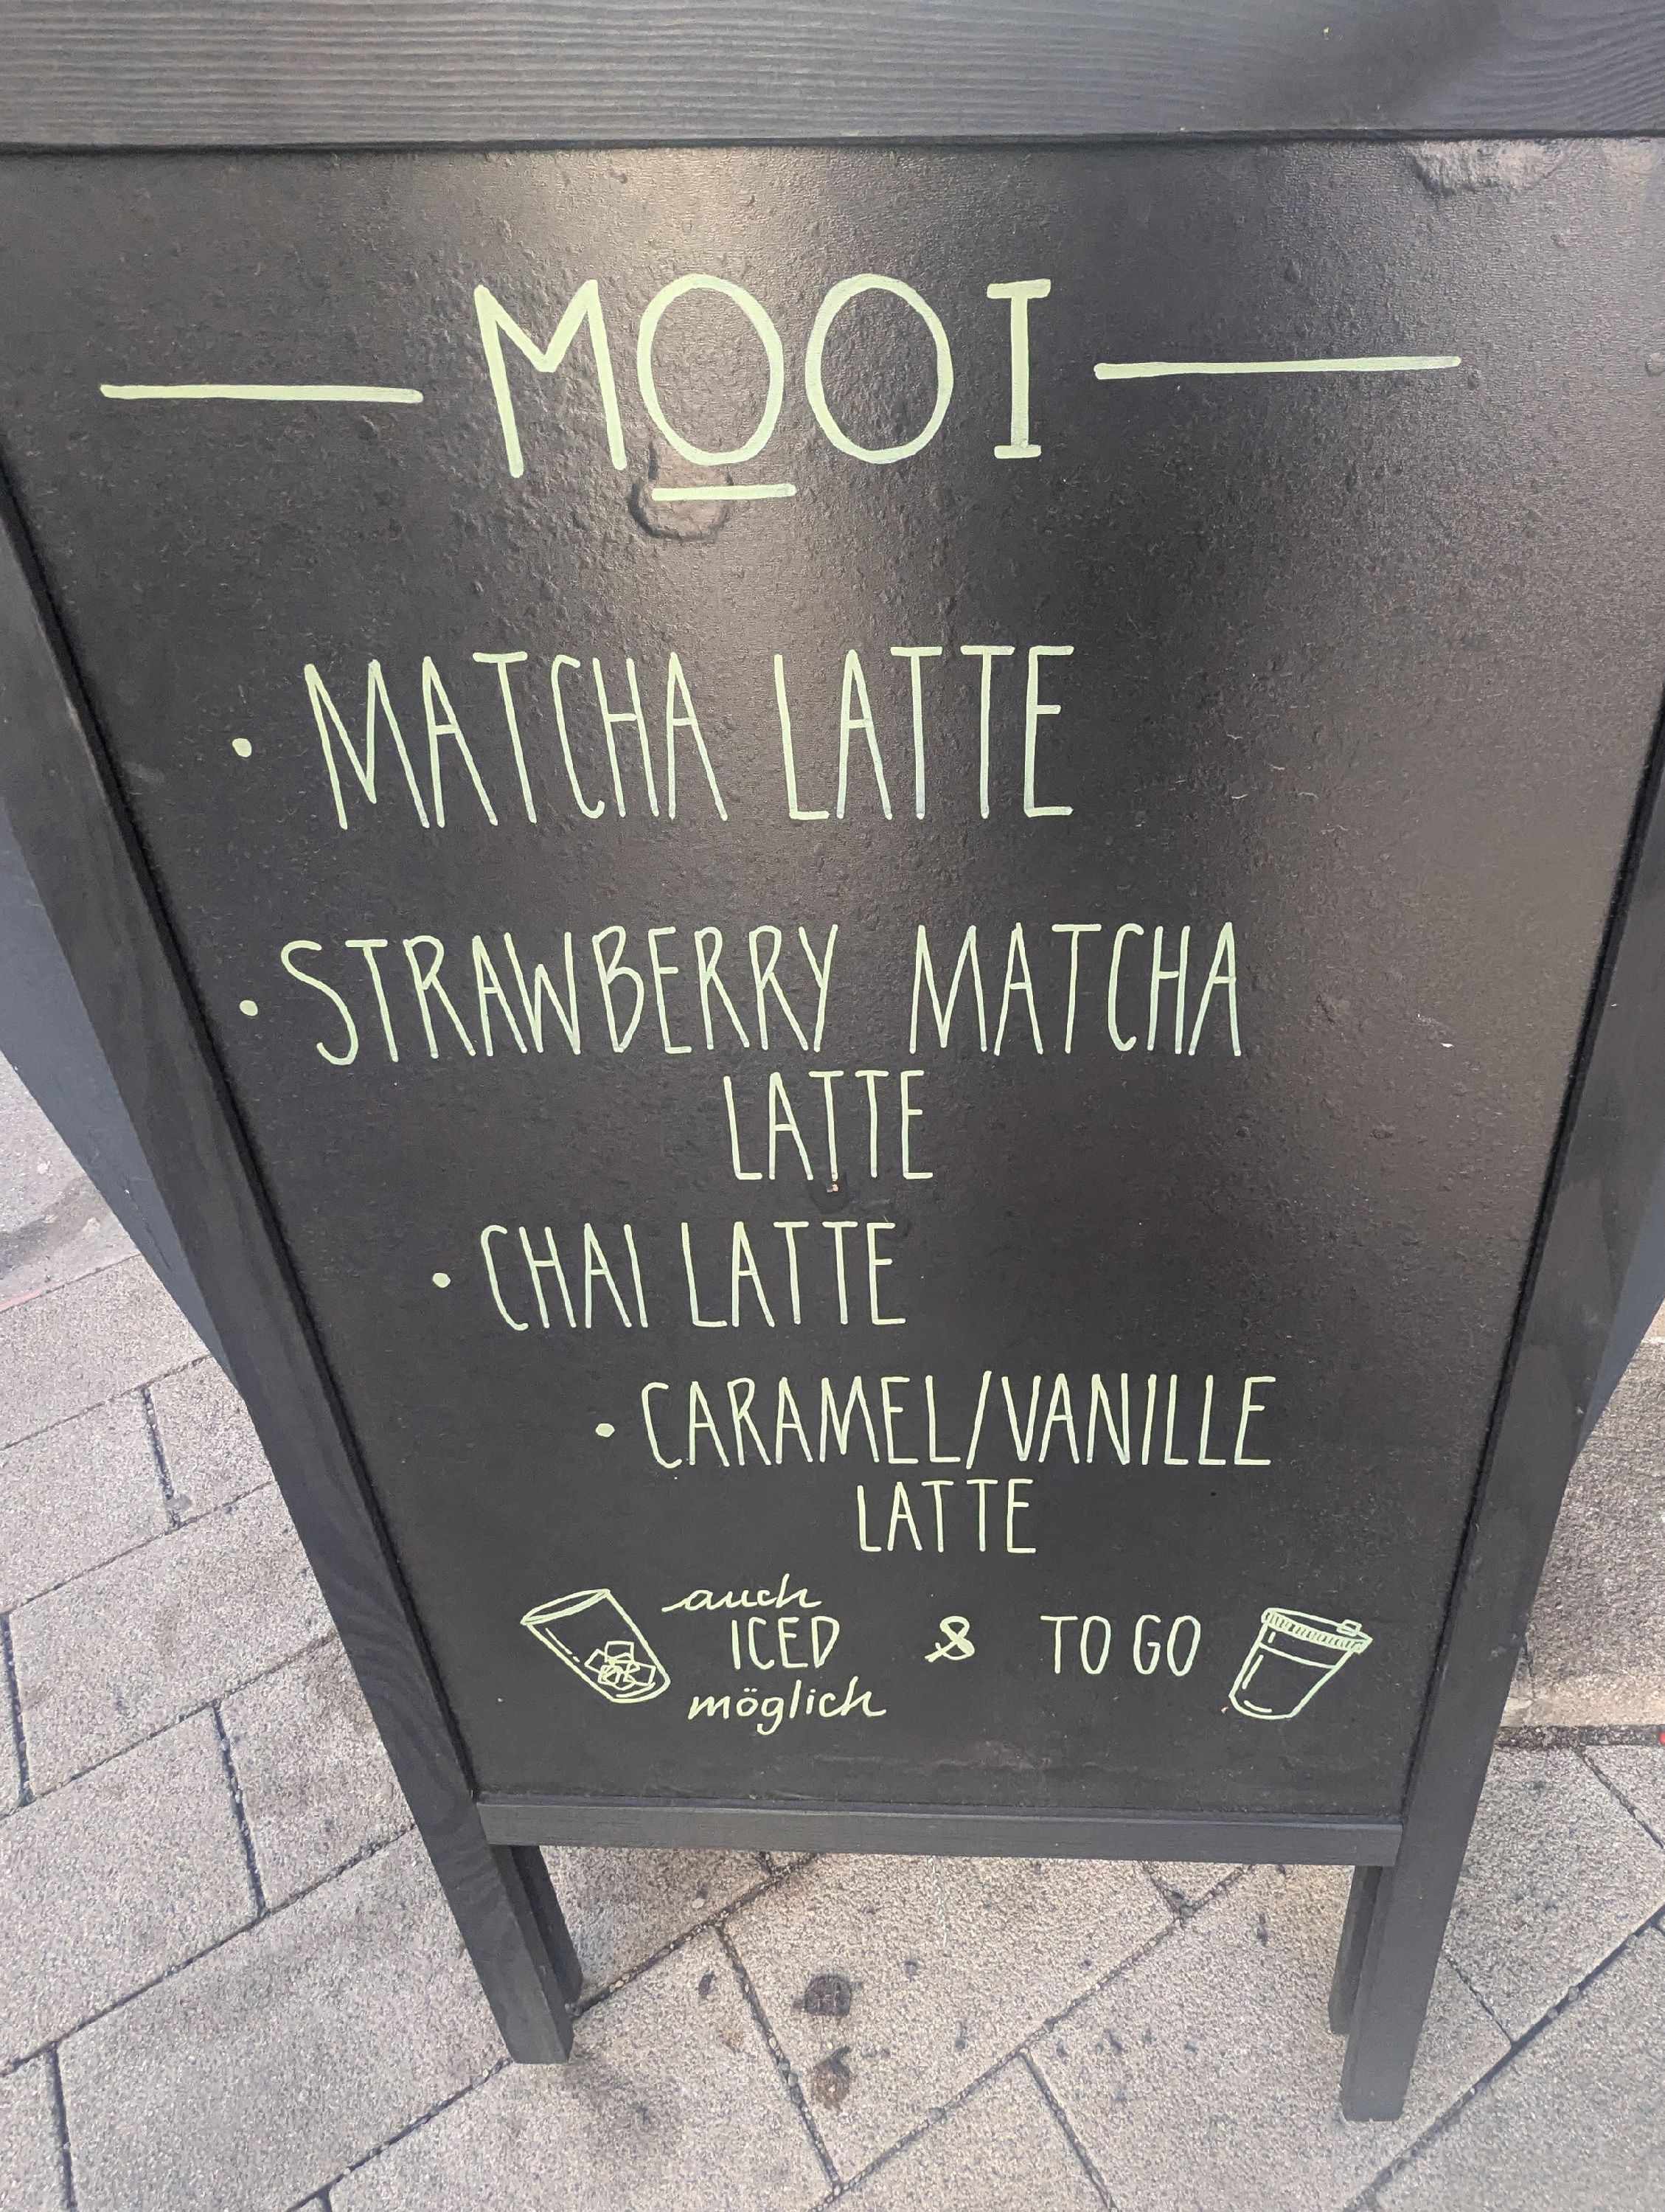 MOOI
· MATCHA LATTE
· STRAWBERRY MATCHA
LATTE
· CHAI LATTE
· CARAMEL/VANILLE
LATTE
auch
ICED & TO GO
möglich